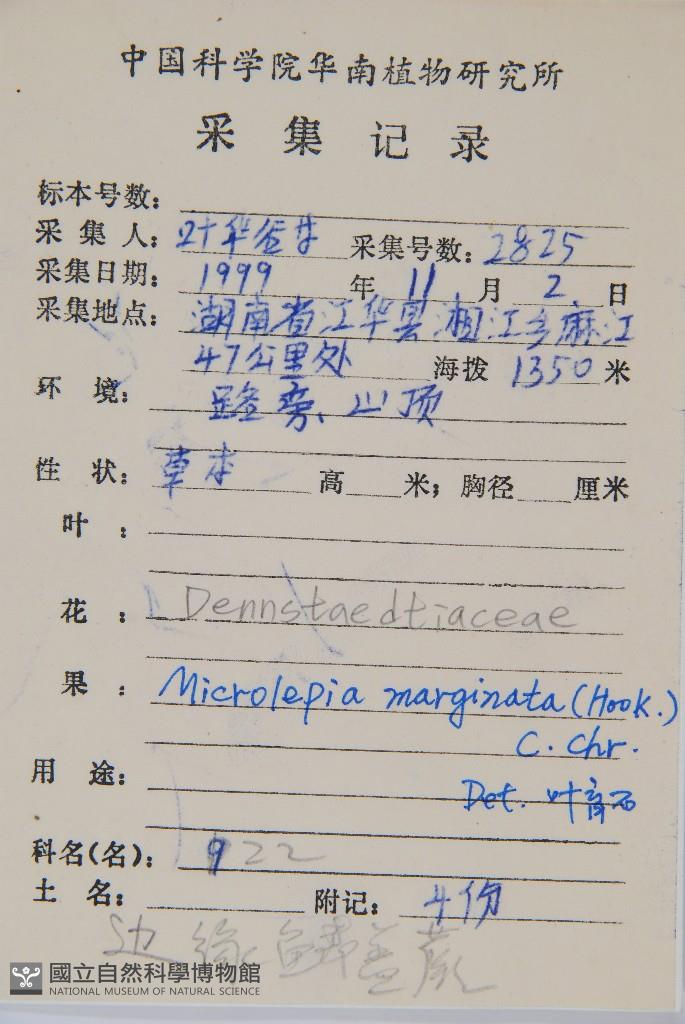 中国科学院华南植物研究所
采集记录
标本号数：
采集人：叶华谷等 采集号数：2825
采集日期：1999年11月2日
采集地点：湖南省江华县湘江乡麻江
47公里处 海拨1350米
环境：路旁、山顶
性状：草本 高 米；胸径 厘米
叶：
花：Dennstaedtiaceae
果：Microlepia marginata (Hook.)
C. Chr.
用途：
Det. 叶育石
科名(名)：922
土名： 附记：4份
边缘鳞盖蕨
國立自然科學博物館
NATIONAL MUSEUM OF NATURAL SCIENCE